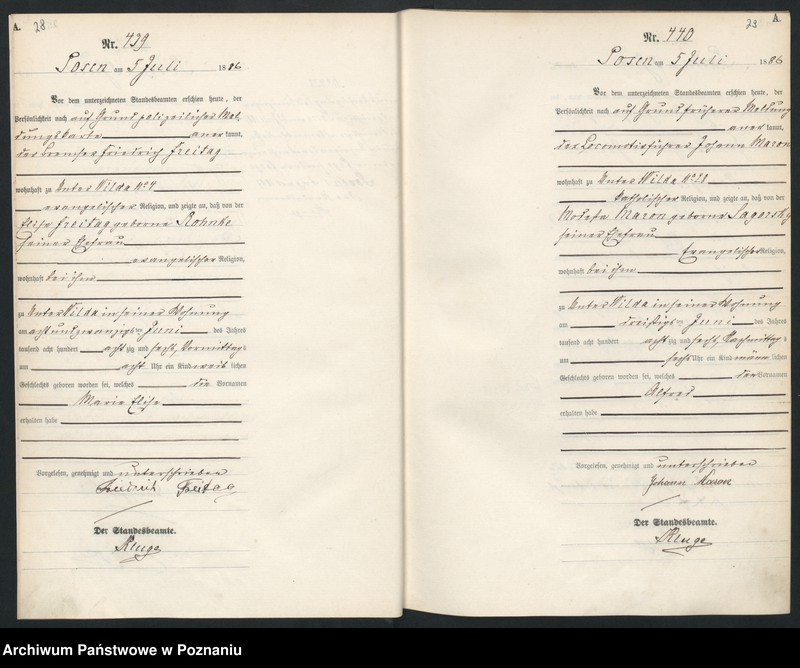 A. 28
Nr. 439
Posen am 5 Juli 1886
Vor dem unterzeichneten Standesbeamten erschien heute, der
Persönlichkeit nach auf Grund polizeilicher Mel,
dungskarte anerkannt,
der Bremser Friedrich Freitag
wohnhaft zu Unter Wilda No 4
evangelischer Religion, und zeigte an, daß von der
Elise Freitag geborne Rohnke
seiner Ehefrau
evangelischer Religion,
wohnhaft bei ihm
zu Unter Wilda in seiner Wohnung
am acht und zwanzigsten Juni des Jahres
tausend acht hundert achtzig und sechs, Vormittags
um acht Uhr ein Kind weiblichen
Geschlechts geboren worden sei, welches die Vornamen
Marie Elise
erhalten habe
Vorgelesen, genehmigt und unterschrieben
Freitag
Der Standesbeamte.
Kluge
23 A.
Nr. 440
Posen am 5 Juli 1886
Vor dem unterzeichneten Standesbeamten erschien heute, der
Persönlichkeit nach auf Grund früherer Meldung
anerkannt,
der Locomotivführer Johann Maron
wohnhaft zu Unter Wilda No 28
katholischer Religion, und zeigte an, daß von der
Maron geborne Sagorsky
seiner Ehefrau
Evangelischer Religion,
wohnhaft bei ihm
zu Unter Wilda in seiner Wohnung
am dreißigsten Juni des Jahres
tausend acht hundert achtzig und sechs, Nachmittags
um sechs Uhr ein Kind männlichen
Geschlechts geboren worden sei, welches den Vornamen
Alfred
erhalten habe
Vorgelesen, genehmigt und unterschrieben
Johann Maron
Der Standesbeamte.
Kluge
Archiwum Państwowe w Poznaniu